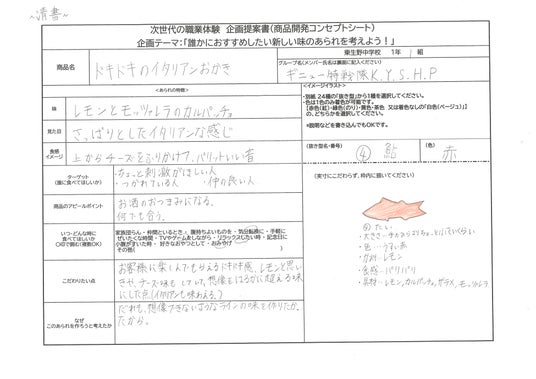 ~清書~
次世代の職業体験 企画提案書(商品開発コンセプトシート)
企画テーマ:「誰かにおすすめしたい新しい味のあられを考えよう!」
東生野中学校 1年 1組
商品名
ドキドキのイタリアンおかき
グループ名/メンバー氏名を裏面に記入ください)
ギニュー特戦隊K.Y.S.H.P
<あられの特徴>
味
レモンとモッツァレラのカルパッチョ
見た目
さっぱりとしたイタリアンな感じ
食感
イメージ
上からチーズをふりかけて、パリットいい音
ターゲット
(誰に食べてほしいか)
・ちょっと刺激がほしい人
・つかれている人 ・仲の良い人
商品のアピールポイント
お酒のおつまみになる。
何でも合う。
いつ・どんな時に
食べてほしいか
○印で囲む(複数OK)
家族団らん・仲間といるとき・腹持ちよいものを・気分転換に・手軽に
ぜいたくな時間・TVやゲームをしながら・リラックスしたい時・記念日に
小腹がすいた時・好きなおやつとして・おみやげ
その他( )
こだわりたい点
お客様に楽しんでもらえるドキドキ感、レモンと思い
きや、チーズ味もしていて、想像をはるかに超える味
にした点(イタリアンも味わえる)
なぜ
このあられを作ろうと考えたか
だれも、想像できないようなラインの味を作りたか
たから。
<イメージイラスト>
・別紙 24種の「抜き型」から1種を選択してください。
・色は1色のみ着色が可能です。
【赤色(紅)・緑色(のり)・黄色・茶色 又は着色なしの「白色(ベージュ)」】
の、どちらかを選択してください。
*説明などを書き込んでもOKです。
(抜き型名・番号)
④ 鮎
(色)
赤
(実寸にこだわらず、枠内に描いてください)
・色…うすい赤
・食感…パリパリ